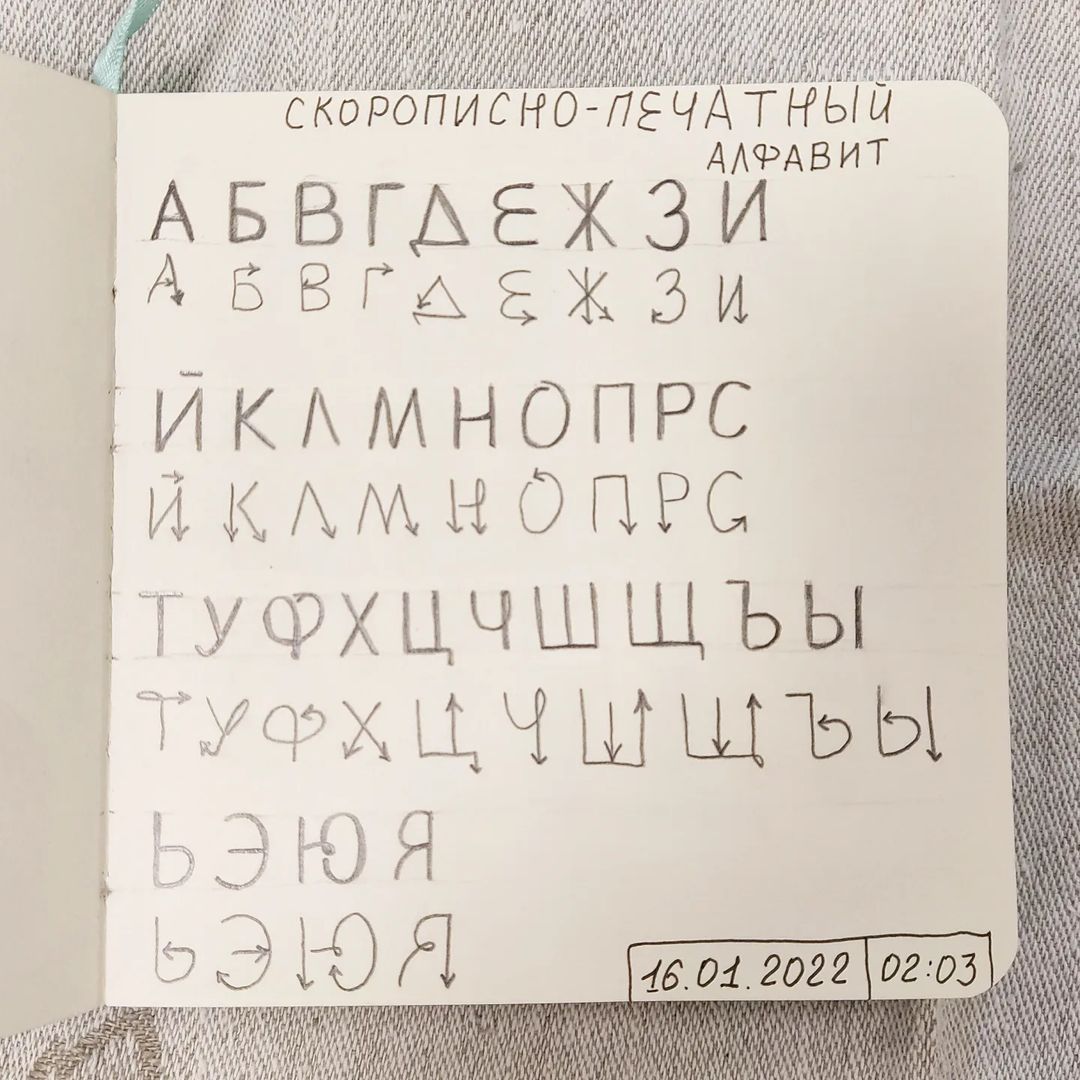 СКОРОПИСНО-ПЕЧАТНЫЙ
АЛФАВИТ
А Б В Г Д Е Ж З И
А Б В Г Д Е Ж З И
Й К Л М Н О П Р С
Й К Л М Н О П Р С
Т У Ф Х Ц Ч Ш Щ Ъ Ы
Т У Ф Х Ц Ч Ш Щ Ъ Ы
Ь Э Ю Я
Ь Э Ю Я
16.01.2022 02:03